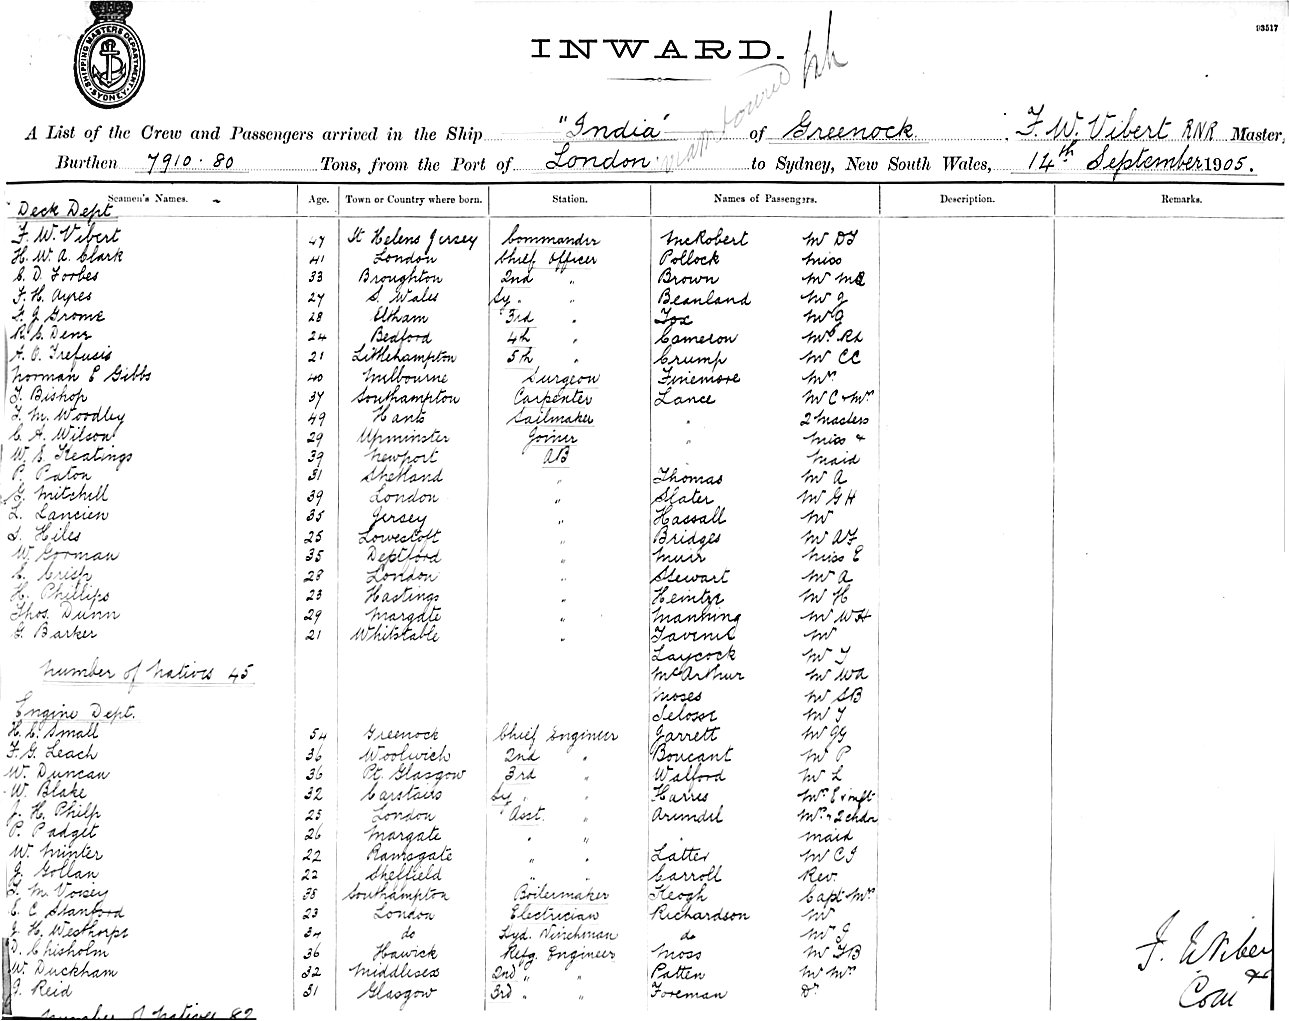 SHIPPING MASTERS DEPARTMENT SYDNEY
93517
INWARD.
A List of the Crew and Passengers arrived in the Ship "India" of Greenock F. W. Vibert RNR Master,
Burthen 7910.80 Tons, from the Port of London to Sydney, New South Wales, 14th September 1905.
Seamen's Names. Age. Town or Country where born. Station. Names of Passengers. Description. Remarks.
Deck Dept
F. W. Vibert 47 St Helens Jersey Commander McRobert Mr DJ
H. W. A. Clark 41 London Chief Officer Pollock Miss
C. D. Forbes 33 Broughton 2nd " Brown Mr
F. H. Ayres 27 S. Wales Sy. " Beanland Mr J
G. J. Grome 28 Eltham 3rd " Fox Mr G
R. C. Dene 24 Bedford 4th " Cameron
A. O. Trefusis 21 Littlehampton 5th " Crump Mr CC
Norman E Gibbs 40 Milbourne Surgeon Finemore Mrs
T. Bishop 37 Southampton Carpenter Lance Mr C & Mrs
T. M. Woodley 49 Hants Sailmaker " 2 Masters
C. A. Wilson 29 Upminster Joiner " Miss &
W. E. Keatings 39 Newport AB Maid
P. Paton 31 Shetland " Thomas Mr A
G. Mitchell 39 London " Slater Mr GH
L. Lancien 35 Jersey " Hassall Mr
S. Hiles 25 Lowestoft " Bridges Mr AF
W. Gorman 35 Deptford " Muir Miss E
C. Crisp 23 London " Stewart Mr A
H. Phillips 23 Hastings " Heintze Mr H
Thos. Dunn 29 Margate " Manning Mr WH
G. Barker 21 Whitstable " Mr
Laycock Mr T
Number of Natives 45 McArthur Mr WA
Moses Mr SB
Engine Dept. Mr T
H. C. Small 54 Greenock Chief Engineer Garrett Mr GG
F. G. Leach 36 Woolwich 2nd " Boucant Mr P
W. Duncan 36 Pt. Glasgow 3rd " Walford Mr L
W. Blake 32 Carstairs Sy. " Harris Mrs E & inft
J. H. Philp 25 London Asst. " Arundel Mrs & 2 chdn
P. Padget 26 Margate " " " maid
W. Minter 22 Ramsgate " " Latter Mr CJ
J. Gollan 22 Sheffield " " Carroll Rev.
T. M. Voisey 38 Southampton Boilermaker Keogh Capt & Mrs
E. C Stanford 23 London Electrician Richardson Mr
J. H. Westhorpe 34 do Hyd. Winchman do Mr J
D. Chisholm 36 Hawick Refg. Engineer Moss Mr FB
W. Duckham 32 Middlesex 2nd " " Patten Mr Mrs
J. Reid 31 Glasgow 3rd " " Foreman Dr
Number of Natives 82
F. W Viber
Com